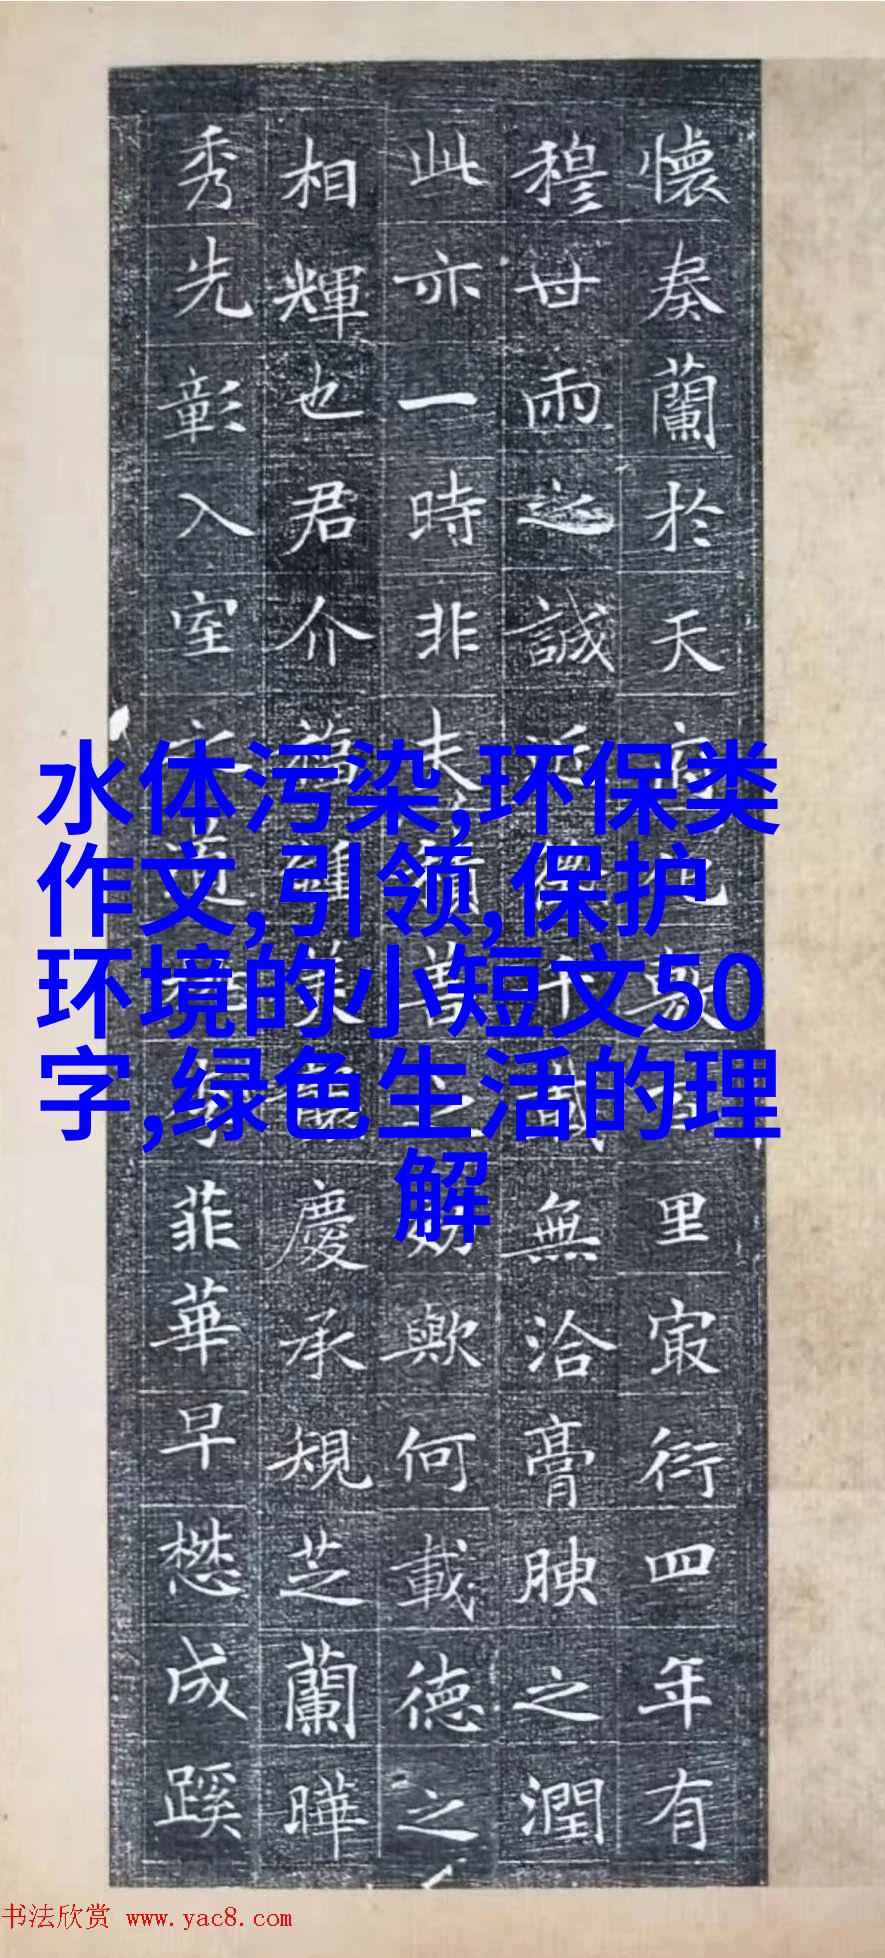 懷奏蘭於天里㝡衍四年有
穆世雨之誠無洽膏腴之潤
此亦一時非夫善効歟何載德之
相輝也君介慶承規芝蘭曄
秀先彰入室菲華早懋成蹊
水体污染,环保类
作文,引领,保护
环境的小短文50
字,绿色生活的理
解
书法欣赏 www.yac8.com